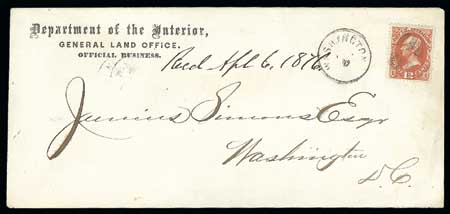 Department of the Interior,
GENERAL LAND OFFICE.
OFFICIAL BUSINESS.
Recd Apl 6, 1876
WASHINGTON
12
Junius Simons Esqr
Washington
D.C.